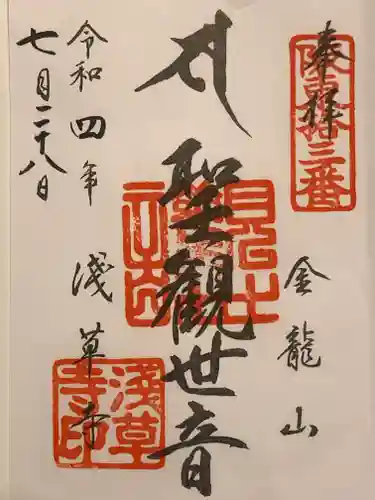 奉拝
坂東拾三番
金龍山
聖観世音
令和四年
七月二十八日
浅草寺
浅草寺印